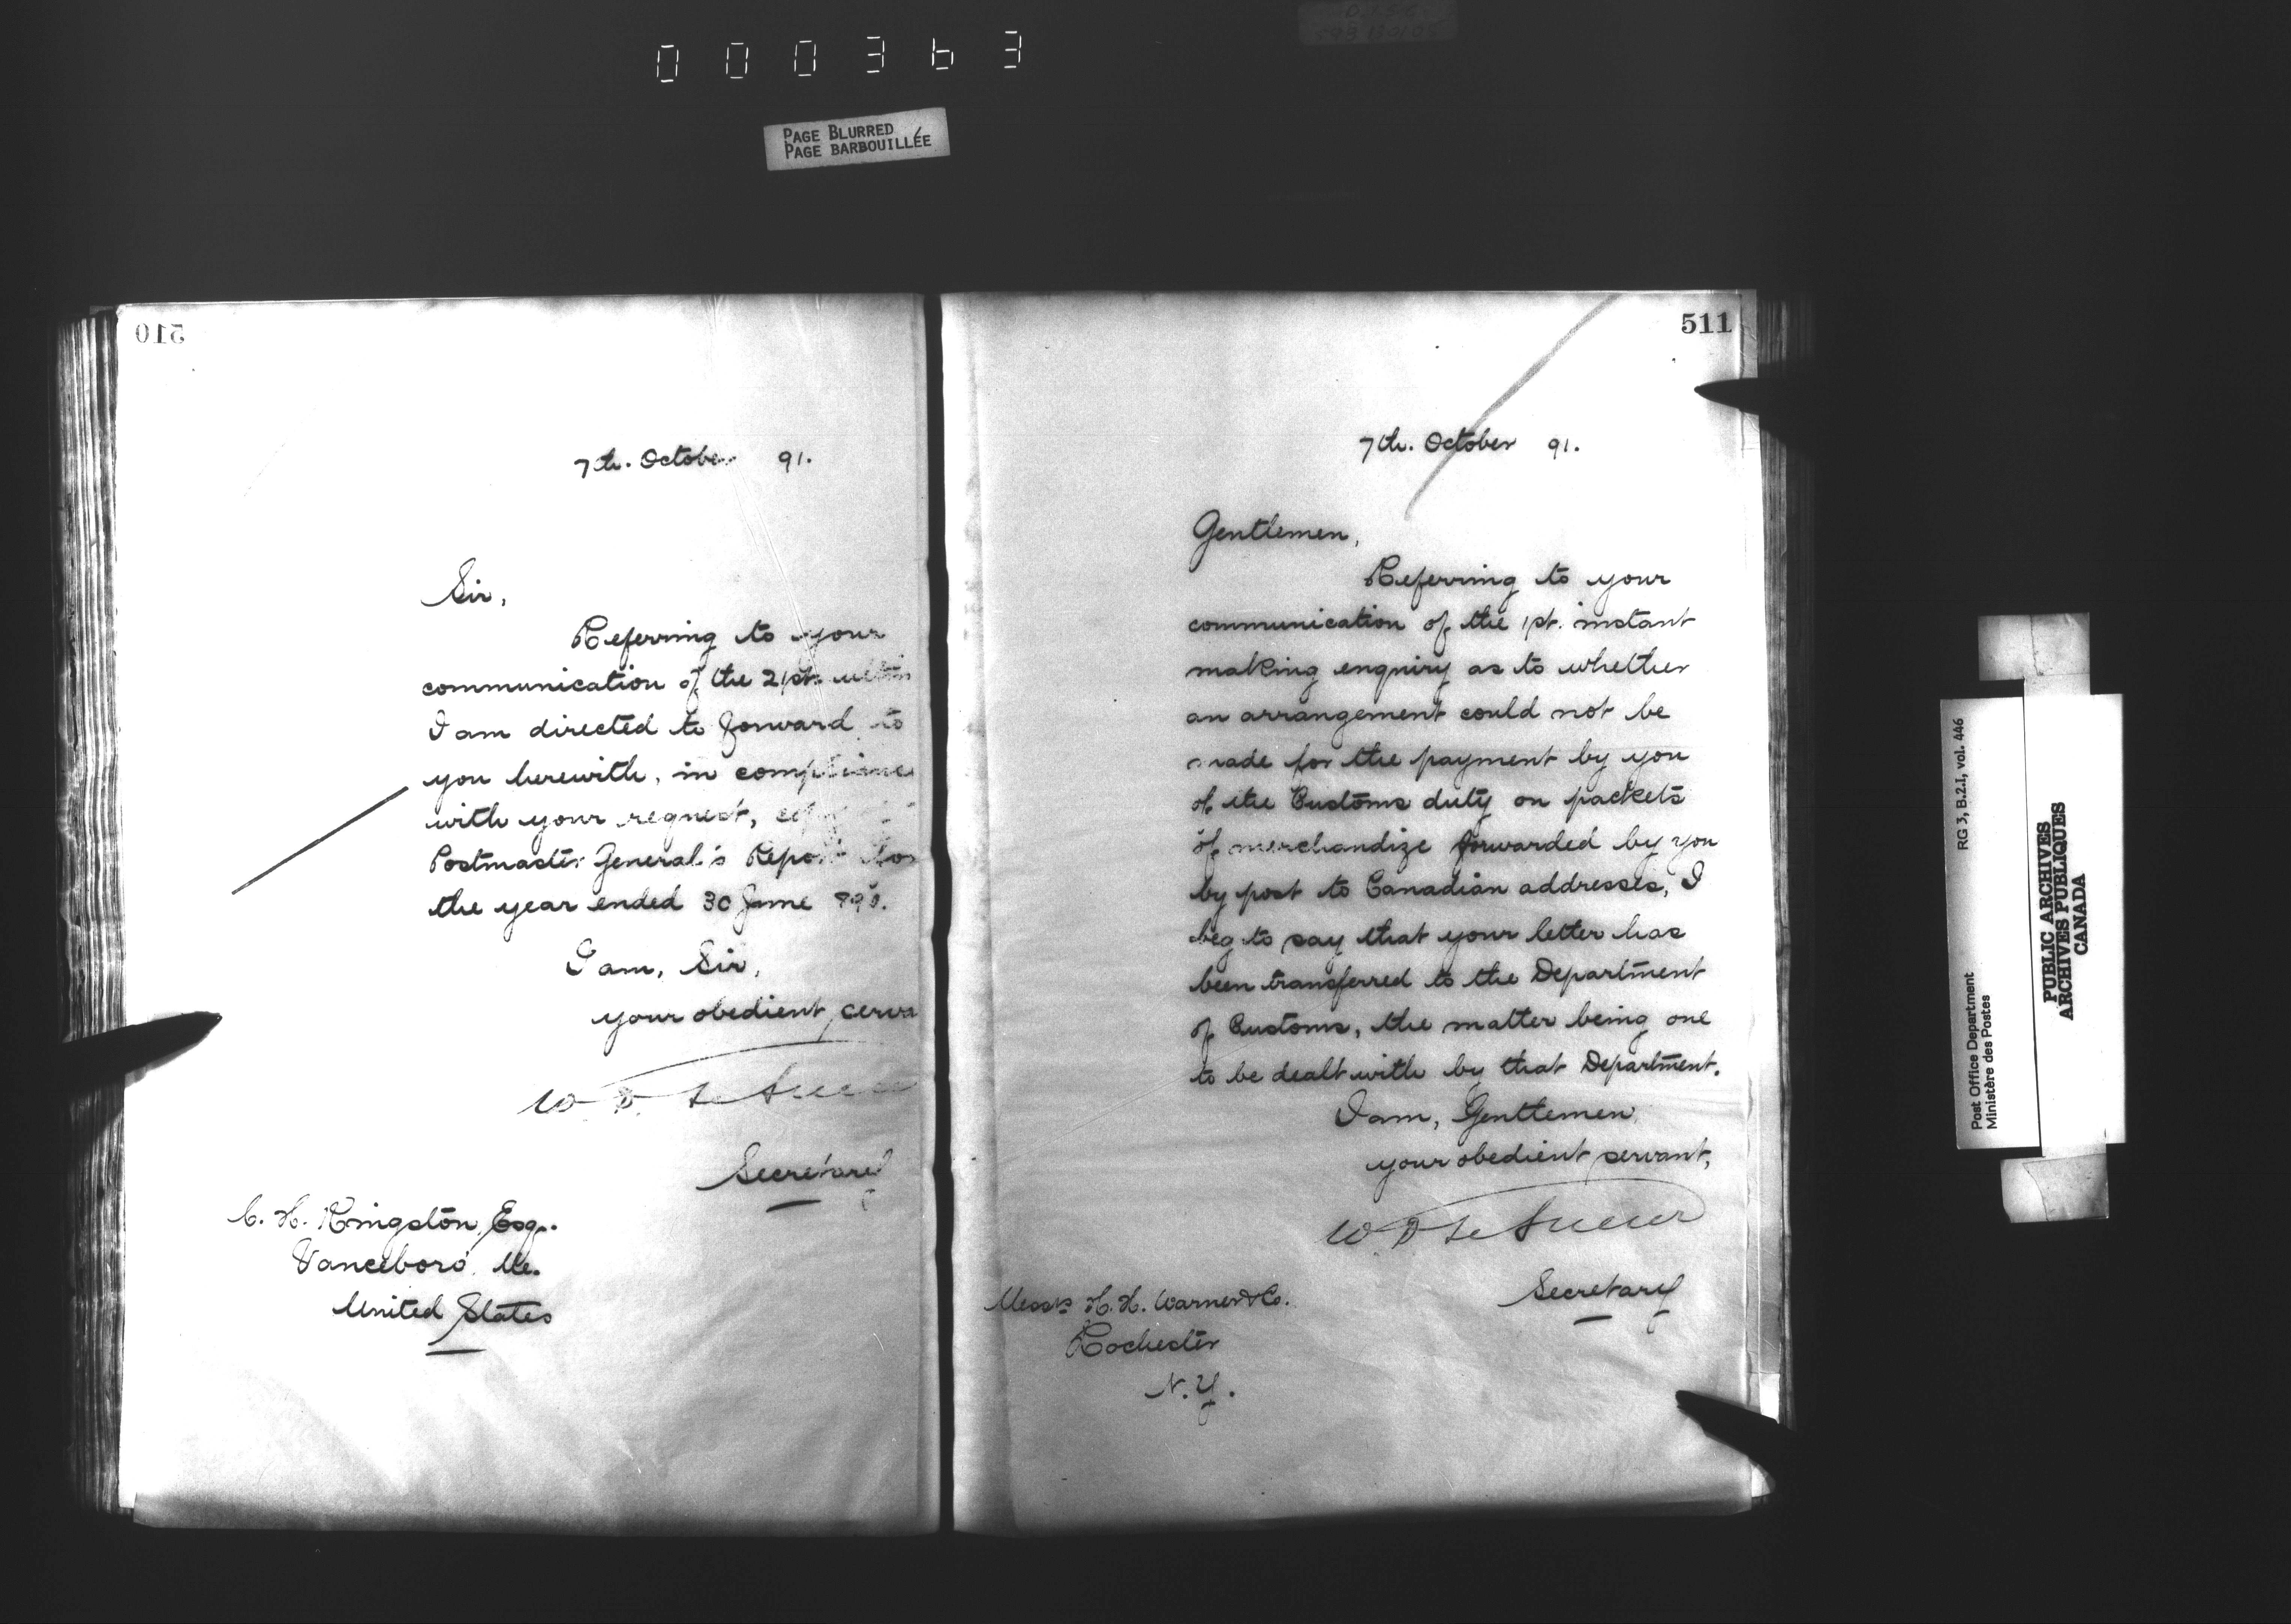 000363
PAGE BLURRED
PAGE BARBOUILLÉE
510
7th. October 91.
Sir,
Referring to your
communication of the 21st.
I am directed to forward to
you herewith, in compliance
with your request,
Postmaster General's Report for
the year ended 30 June
I am, Sir,
your obedient
W D Le Sueur
Secretary
C. H. Kingston, Esq.
Vanceboro', Me.
United States
511
7th. October 91.
Gentlemen,
Referring to your
communication of the 1st. instant
making enquiry as to whether
an arrangement could not be
made for the payment by you
of the Customs duty on packets
of merchandize forwarded by you
by post to Canadian addresses, I
beg to say that your letter has
been transferred to the Department
of Customs, the matter being one
to be dealt with by that Department.
I am, Gentlemen
your obedient servant,
W. D Le Sueur
Secretary
Messrs H. H. Warner & Co.
Rochester
N. Y.
RG 3, B.2.1, vol. 446
Post Office Department
Ministère des Postes
PUBLIC ARCHIVES
ARCHIVES PUBLIQUES
CANADA